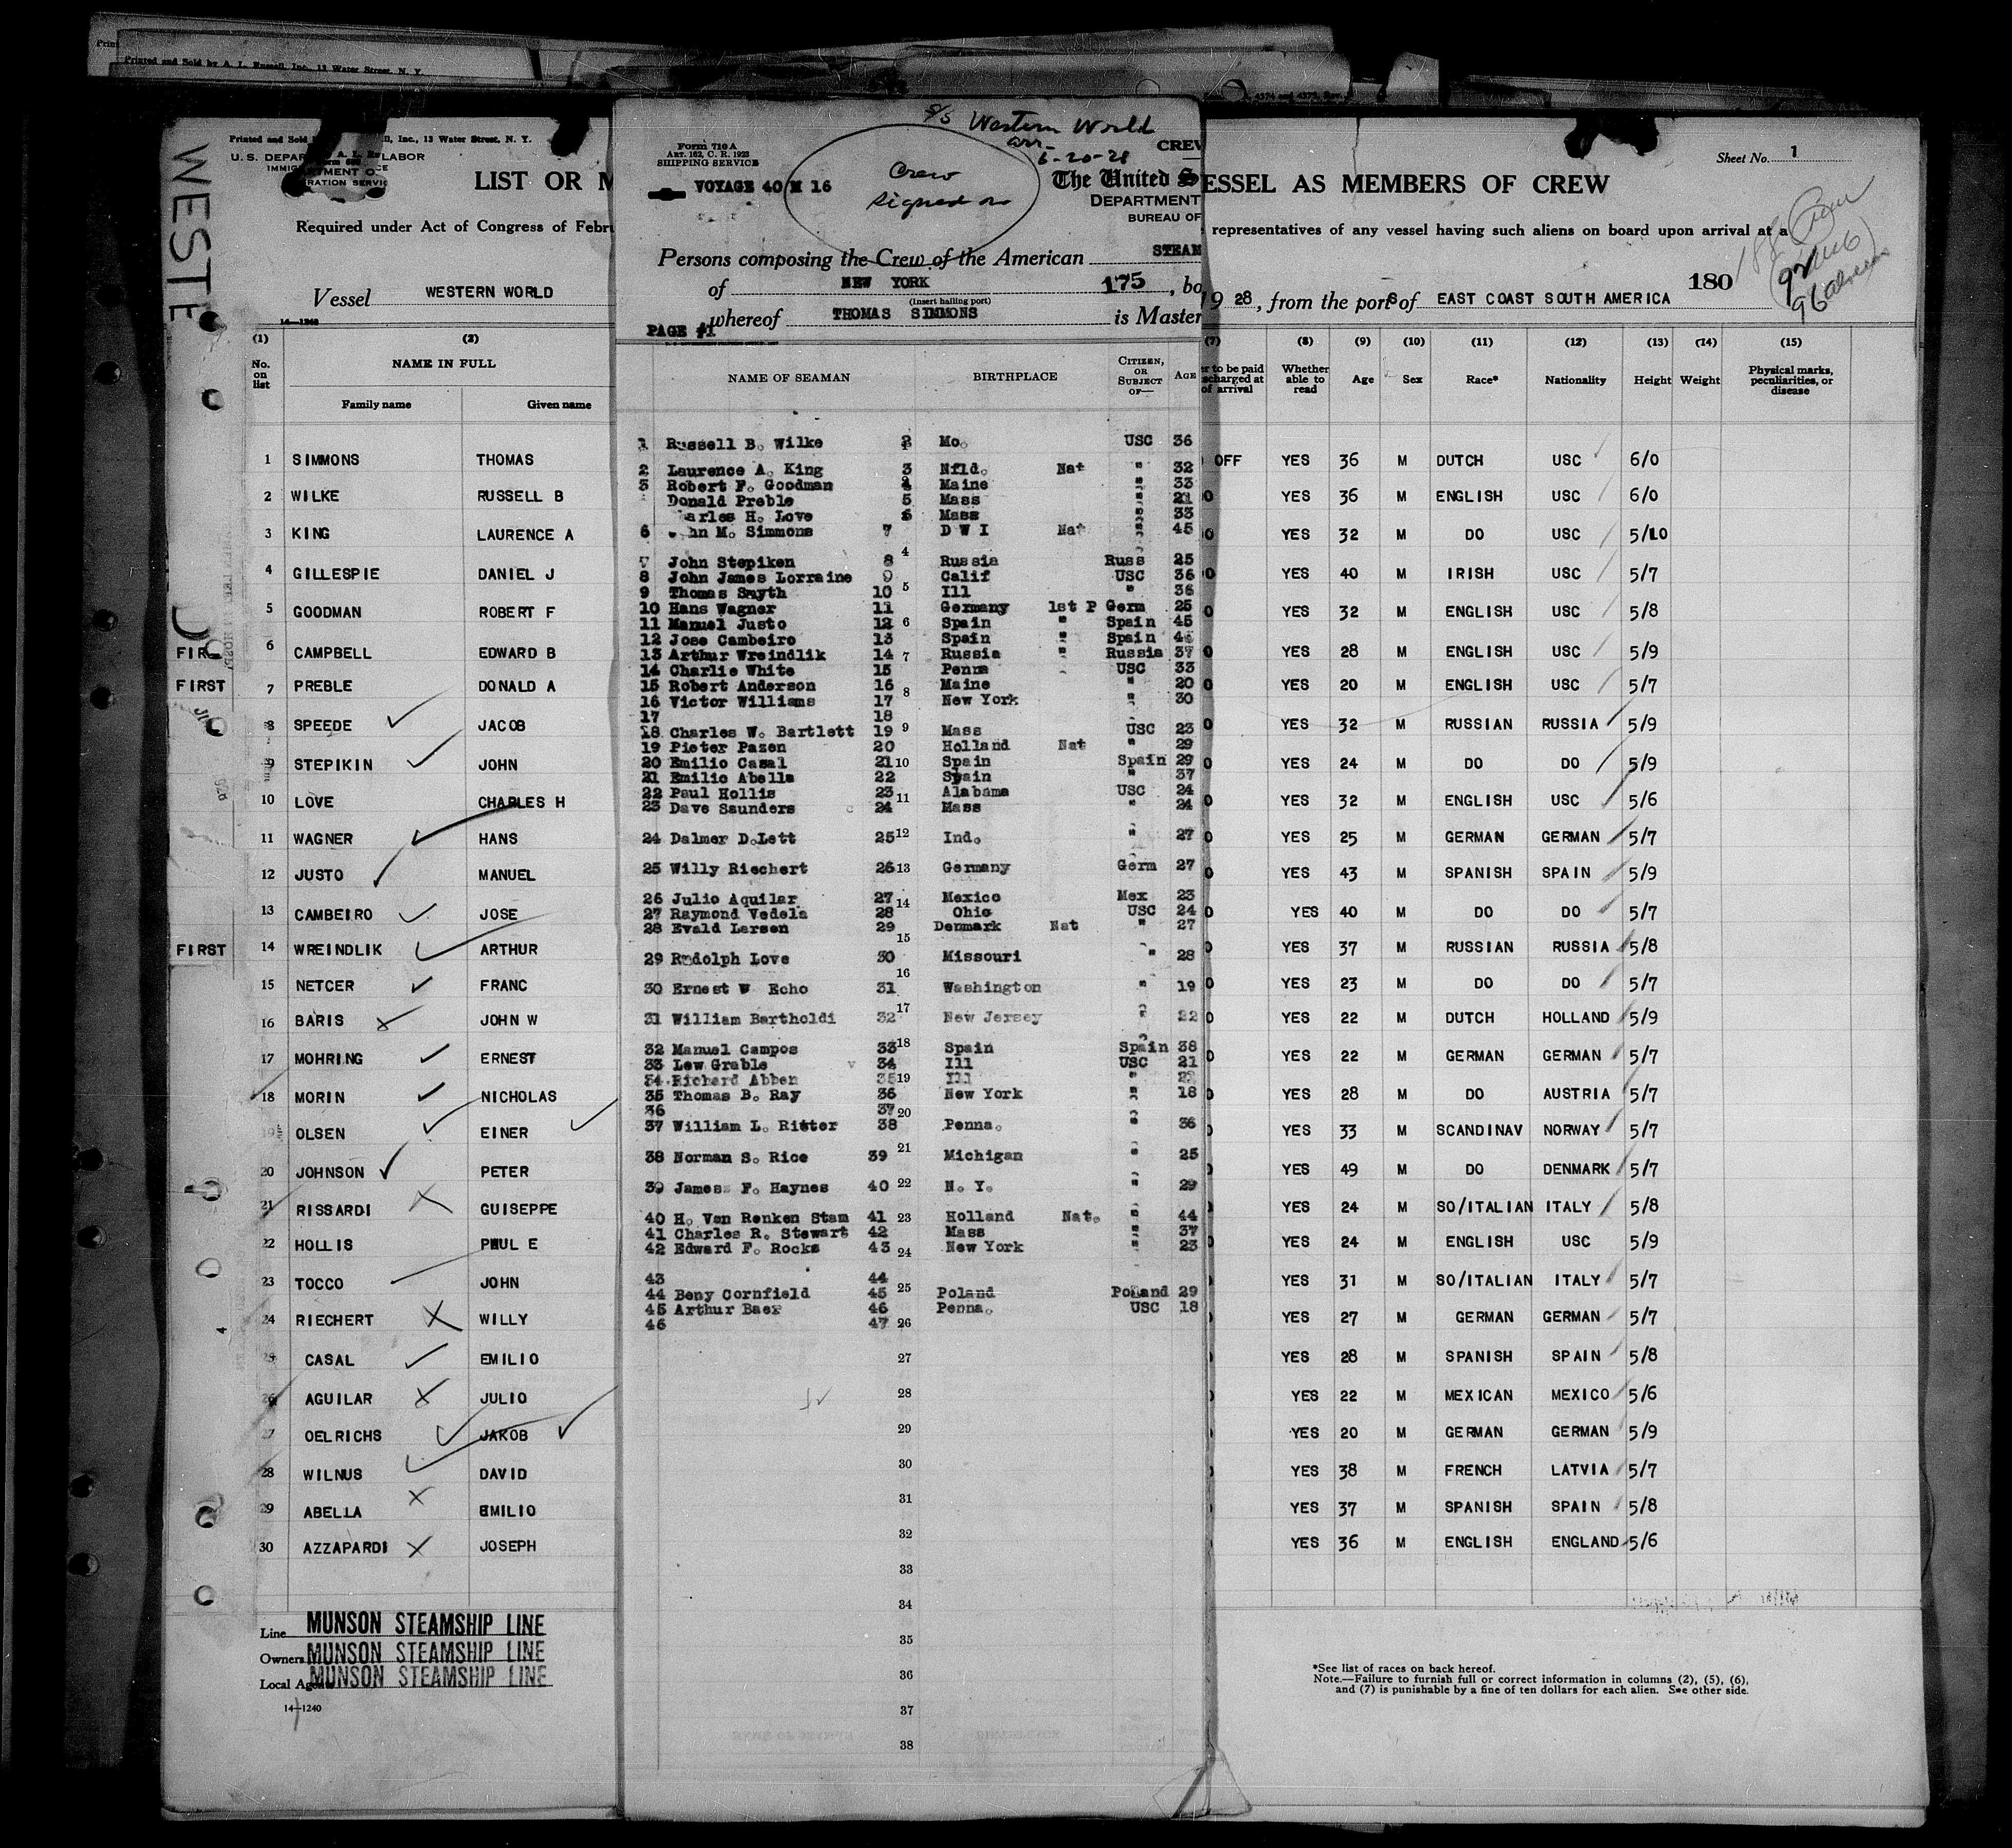 Printed and Sold by A. L. Russell, Inc., 13 Water Street, N. Y.
WESTE
Printed and Sold Inc., 13 Water Street, N. Y.
U. S. LABOR
LIST OR
Required under Act of Congress of
Vessel WESTERN WORLD
14—1240
(1) (2)
No. on list
NAME IN FULL
Family name Given name
1 SIMMONS THOMAS
2 WILKE RUSSELL B
3 KING LAURENCE A
4 GILLESPIE DANIEL J
5 GOODMAN ROBERT F
6 CAMPBELL EDWARD B
FIRST 7 PREBLE DONALD A
8 SPEEDE JACOB
9 STEPIKIN JOHN
10 LOVE CHARLES H
11 WAGNER HANS
12 JUSTO MANUEL
13 CAMBEIRO JOSE
FIRST 14 WREINDLIK ARTHUR
15 NETCER FRANC
16 BARIS JOHN W
17 MOHRING ERNEST
18 MORIN NICHOLAS
19 OLSEN EINER
20 JOHNSON PETER
21 RISSARDI GUISEPPE
22 HOLLIS PAUL E
23 TOCCO JOHN
24 RIECHERT WILLY
25 CASAL EMILIO
26 AGUILAR JULIO
27 OELRICHS JAKOB
28 WILNUS DAVID
29 ABELLA EMILIO
30 AZZAPARDI JOSEPH
Line MUNSON STEAMSHIP LINE
Owners MUNSON STEAMSHIP LINE
Local Agents MUNSON STEAMSHIP LINE
14—1240
S/S Western World
arr-
6-20-28
Form 710 A
ART. 162, C. R. 1923
SHIPPING SERVICE
VOYAGE 40 M 16
Crew
signed on
CREW
The United S
DEPARTMENT
BUREAU OF
Persons composing the Crew of the American STEAM
of NEW YORK 175, bo
(Insert hailing port)
whereof THOMAS SIMMONS is Master
PAGE #1
NAME OF SEAMAN BIRTHPLACE CITIZEN, OR SUBJECT OF— AGE
1 Russell B. Wilke 2 Mo. USC 36
2 Laurence A. King 3 Nfld. Nat " 32
3 Robert F. Goodman 4 Maine " 33
Donald Preble 5 Mass " 21
arles H. Love 6 Mass " 33
6 hn M. Simmons 7 D W I Nat " 45
7 John Stepiken 8 4 Russia Russ 25
8 John James Lorraine 9 Calif USC 36
9 Thomas Smyth 10 5 Ill " 36
10 Hans Wagner 11 Germany 1st P Germ 25
11 Manuel Justo 12 6 Spain " Spain 45
12 Jose Cambeiro 13 Spain " Spain
13 Arthur Wreindlik 14 7 Russia " Russia 37
14 Charlie White 15 Penna USC 33
15 Robert Anderson 16 8 Maine " 20
16 Victor Williams 17 New York " 30
17 18
18 Charles W. Bartlett 19 9 Mass USC 23
19 Pieter Pazen 20 Holland Nat " 29
20 Emilio Casal 21 10 Spain Spain 29
21 Emilio Abella 22 Spain " 37
22 Paul Hollis 23 11 Alabama USC 24
23 Dave Saunders 24 Mass " 24
24 Dalmer D.Lett 25 12 Ind. " 27
25 Willy Riechert 26 13 Germany Germ 27
26 Julio Aquilar 27 14 Mexico Mex 23
27 Raymond Vedela 28 Ohio USC 24
28 Evald Larsen 29 15 Denmark Nat " 27
29 Rudolph Love 30 Missouri " 28
16
30 Ernest W Echo 31 Washington " 19
17
31 William Bartholdi 32 New Jersey " 22
32 Manuel Campos 33 18 Spain Spain 38
33 Lew Grable 34 Ill USC 21
34 Richard Abben 35 19 Ill "
35 Thomas B. Ray 36 New York " 18
36 37 20
37 William L. Ritter 38 Penna. " 36
21
38 Norman S. Rice 39 Michigan " 25
39 James F. Haynes 40 22 N. Y. " 29
40 H. Van Renken Stam 41 23 Holland Nat. " 44
41 Charles R. Stewart 42 Mass " 37
42 Edward F. Rocks 43 24 New York " 23
43 44
44 Beny Cornfield 45 25 Poland Poland 29
45 Arthur Baer 46 Penna. USC 18
46 47 26
27
28
29
30
31
32
33
34
35
36
37
38
Sheet No. 1
ESSEL AS MEMBERS OF CREW
representatives of any vessel having such aliens on board upon arrival at a
180
19 28, from the ports of EAST COAST SOUTH AMERICA
(7) (8) (9) (10) (11) (12) (13) (14) (15)
er to be paid
scharged at
of arrival
Whether able to read
Age Sex Race* Nationality Height Weight
Physical marks, peculiarities, or disease
OFF YES 36 M DUTCH USC 6/0
YES 36 M ENGLISH USC 6/0
YES 32 M DO USC 5/10
YES 40 M IRISH USC 5/7
YES 32 M ENGLISH USC 5/8
YES 28 M ENGLISH USC 5/9
YES 20 M ENGLISH USC 5/7
YES 32 M RUSSIAN RUSSIA 5/9
YES 24 M DO DO 5/9
YES 32 M ENGLISH USC 5/6
YES 25 M GERMAN GERMAN 5/7
YES 43 M SPANISH SPAIN 5/9
YES 40 M DO DO 5/7
YES 37 M RUSSIAN RUSSIA 5/8
YES 23 M DO DO 5/7
YES 22 M DUTCH HOLLAND 5/9
YES 22 M GERMAN GERMAN 5/7
YES 28 M DO AUSTRIA 5/7
YES 33 M SCANDINAV NORWAY 5/7
YES 49 M DO DENMARK 5/7
YES 24 M SO/ITALIAN ITALY 5/8
YES 24 M ENGLISH USC 5/9
YES 31 M SO/ITALIAN ITALY 5/7
YES 27 M GERMAN GERMAN 5/7
YES 28 M SPANISH SPAIN 5/8
YES 22 M MEXICAN MEXICO 5/6
YES 20 M GERMAN GERMAN 5/9
YES 38 M FRENCH LATVIA 5/7
YES 37 M SPANISH SPAIN 5/8
YES 36 M ENGLISH ENGLAND 5/6
*See list of races on back hereof.
Note.—Failure to furnish full or correct information in columns (2), (5), (6),
and (7) is punishable by a fine of ten dollars for each alien. See other side.